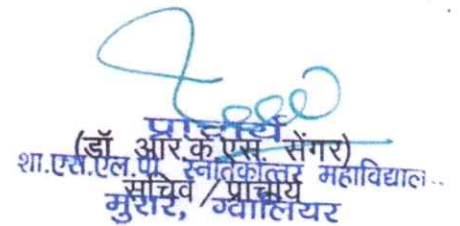 प्राचार्य
(डॉ. आर.के.एस. सेंगर)
शा.एस.एल.पी. स्नातकोत्तर महाविद्याल..
सचिव / प्राचार्य
मुरार, ग्वालियर